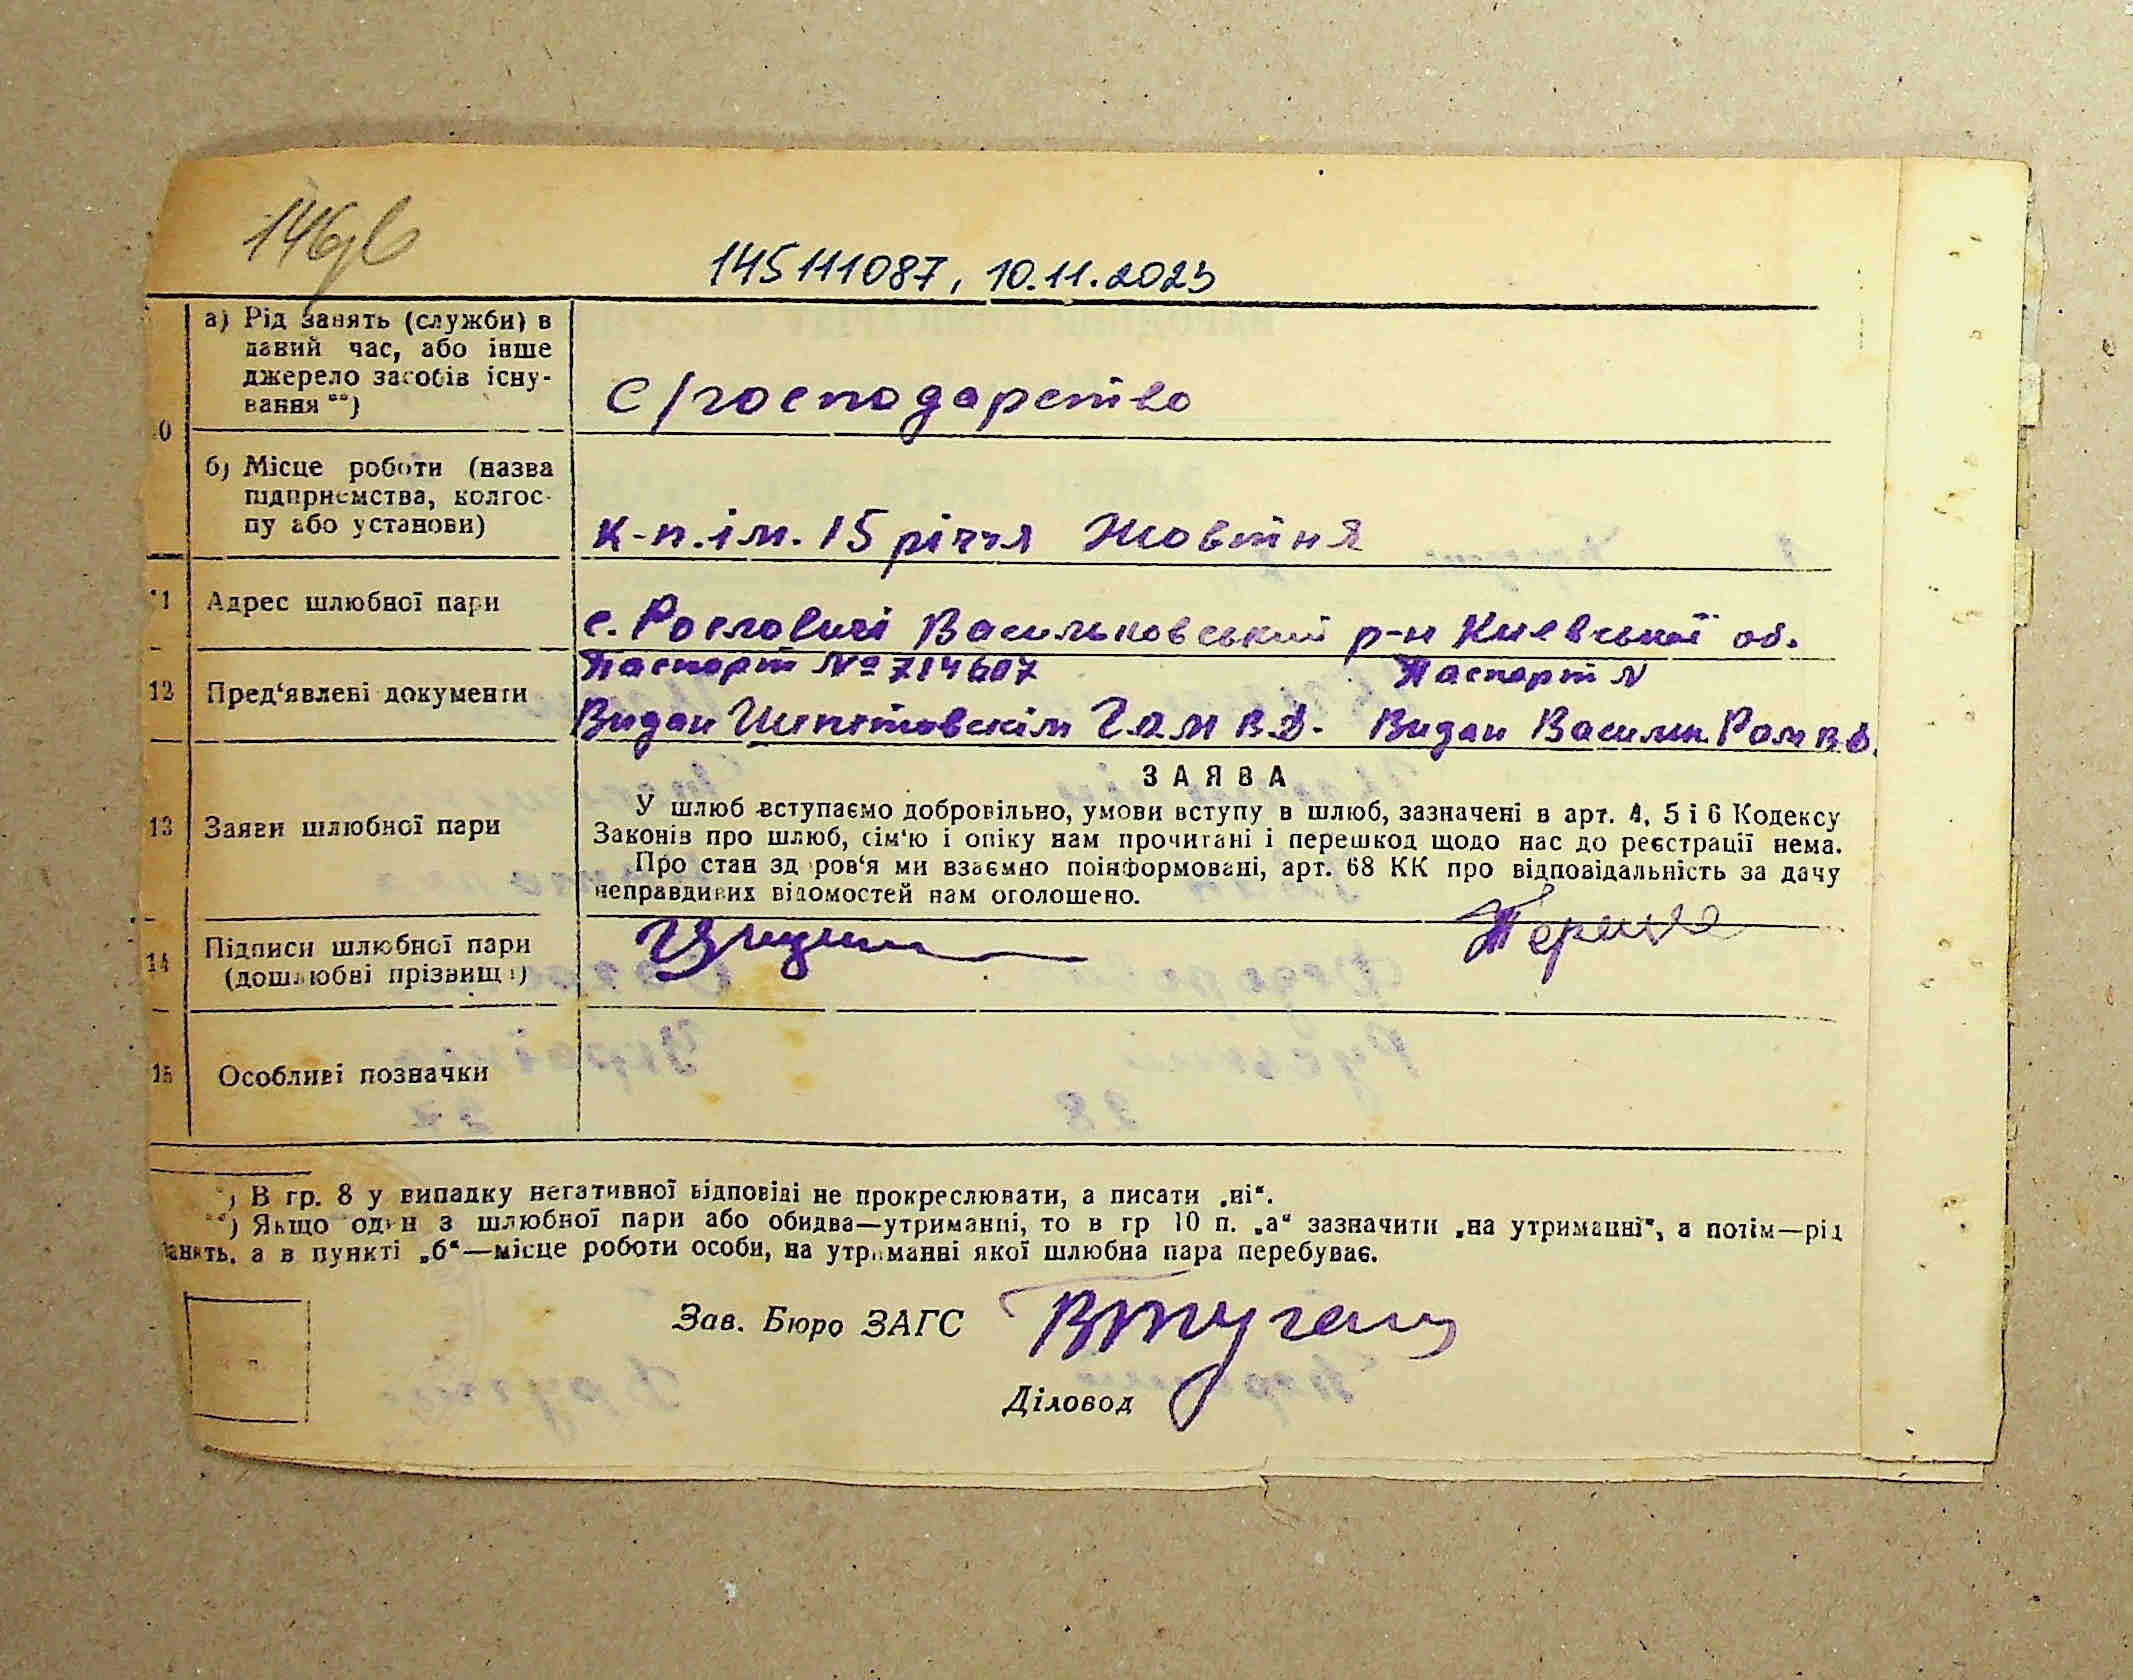 146
145111087, 10.11.2023
а) Рід занять (служби) в
даний час, або інше
джерело засобів існу-
вання **)
С/господарство
0
б) Місце роботи (назва
підприємства, колгос-
пу або установи)
к-п. ім. 15 річчя Жовтня
11
Адрес шлюбної пари
с. Рославичі Васильковський р-н Киевської об.
12
Пред'явлені документи
Паспорт № 714607 Паспорт N
Видан Шепетовскім Г.О.М В.Д. Видан Васильк. Р О М В Д.
ЗАЯВА
13
Заяви шлюбної пари
У шлюб вступаємо добровільно, умови вступу в шлюб, зазначені в арт. 4, 5 і 6 Кодексу
Законів про шлюб, сім'ю і опіку нам прочитані і перешкод щодо нас до реєстрації нема.
Про стан здоров'я ми взаємно поінформовані, арт. 68 КК про відповідальність за дачу
неправдивих відомостей нам оголошено.
14
Підписи шлюбної пари
(дошлюбні прізвища)
15
Особливі позначки
*) В гр. 8 у випадку негативної відповіді не прокреслювати, а писати „ні“.
**) Якщо один з шлюбної пари або обидва—утриманці, то в гр 10 п. „а“ зазначити „на утриманні“, а потім—рід
занять, а в пункті „б“—місце роботи особи, на утриманні якої шлюбна пара перебуває.
Зав. Бюро ЗАГС
Діловод
п.